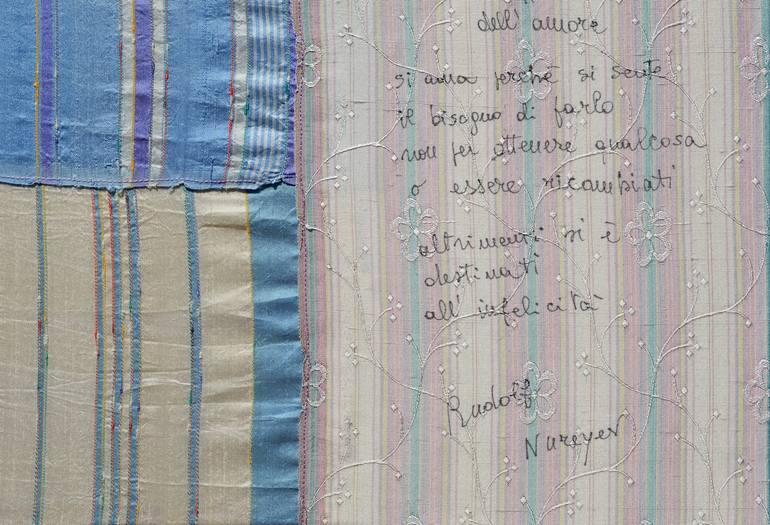 dell'amore
si ama perchè si sente
il bisogno di farlo
non per ottenere qualcosa
o essere ricambiati
altrimenti si è
destinati
all' infelicità
Rudolf
Nureyev